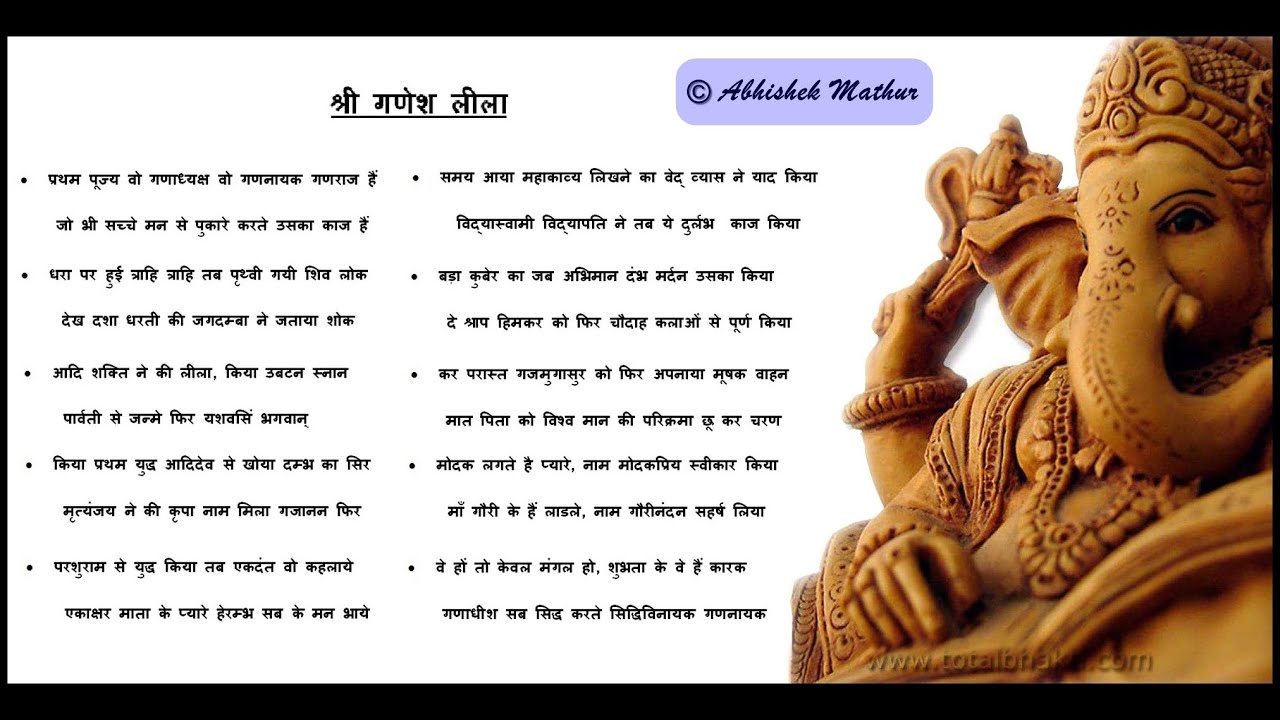 श्री गणेश लीला
© Abhishek Mathur
• प्रथम पूज्य वो गणाध्यक्ष वो गणनायक गणराज हैं
जो भी सच्चे मन से पुकारे करते उसका काज हैं
• धरा पर हुई त्राहि त्राहि तब पृथ्वी गयी शिव लोक
देख दशा धरती की जगदम्बा ने जताया शोक
• आदि शक्ति ने की लीला, किया उबटन स्नान
पार्वती से जन्मे फिर यशवसिं भगवान्
• किया प्रथम युद्ध आदिदेव से खोया दम्भ का सिर
मृत्यंजय ने की कृपा नाम मिला गजानन फिर
• परशुराम से युद्ध किया तब एकदंत वो कहलाये
एकाक्षर माता के प्यारे हेरम्भ सब के मन भाये
• समय आया महाकाव्य लिखने का वेद् व्यास ने याद किया
विद्यास्वामी विद्यापति ने तब ये दुर्लभ काज किया
• बड़ा कुबेर का जब अभिमान दंभ मर्दन उसका किया
दे श्राप हिमकर को फिर चौदाह कलाओं से पूर्ण किया
• कर परास्त गजमुगासुर को फिर अपनाया मूषक वाहन
मात पिता को विश्व मान की परिक्रमा छू कर चरण
• मोदक लगते है प्यारे, नाम मोदकप्रिय स्वीकार किया
माँ गौरी के हैं लाडले, नाम गौरीनंदन सहर्ष लिया
• वे हों तो केवल मंगल हो, शुभता के वे हैं कारक
गणाधीश सब सिद्ध करते सिद्धिविनायक गणनायक
www.totalbhakti.com